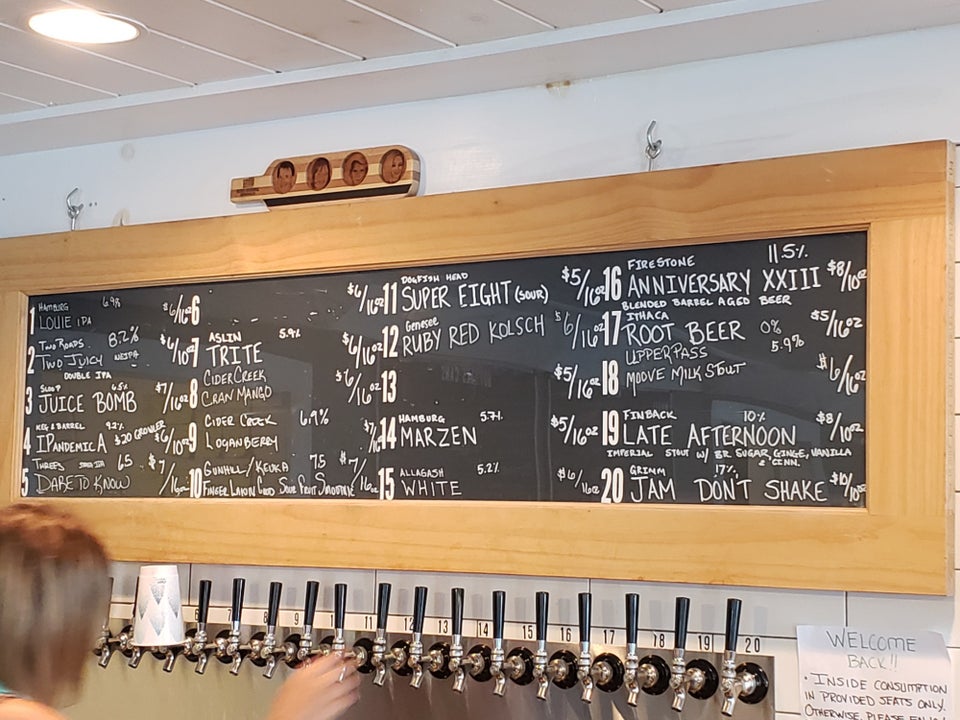 1 HAMBURG 6.9%
LOUIE IPA $6/16oz
2 TWO ROADS 8.2%
TWO JUICY NEIPA $6/10oz
DOUBLE IPA
3 SLOOP 6.5%
JUICE BOMB $7/16oz
4 KEG & BARREL 9.2%
IPANDEMICA $20 GROWLER $6/10oz
5 THREES 6.5
DARE TO KNOW $7/16oz
6 $6/16oz
7 ASLIN 5.9%
TRITE $6/16oz
8 CIDER CREEK
CRAN MANGO $6/16oz
9 CIDER CREEK 6.9%
LOGANBERRY $7/16oz
10 GUNHILL/KEUKA 7.5 $7/16oz
SOUR FRUIT SMOOTHIE
11 DOGFISH HEAD
SUPER EIGHT (SOUR) $5/16oz
12 Genesee
RUBY RED KOLSCH $6/16oz
13 $5/16oz
14 HAMBURG 5.7%
MARZEN $5/16oz
15 ALLAGASH 5.2%
WHITE $6/16oz
16 FIRESTONE 11.5%
ANNIVERSARY XXIII $8/10oz
BLENDED BARREL AGED BEER
17 ITHACA
ROOT BEER 0% $5/16oz
18 UPPERPASS 5.9%
MOOVE MILK STOUT $6/16oz
19 FINBACK 10%
LATE AFTERNOON $8/10oz
IMPERIAL STOUT W/ BR SUGAR, GINGE, VANILLA
& CINN.
20 GRIMM 17%
JAM DON'T SHAKE $10/10oz
9 10 11 12 13 14 15 16 17 18 19 20
WELCOME
BACK!!
• INSIDE CONSUMPTION
IN PROVIDED SEATS ONLY.
OTHERWISE, PLEASE